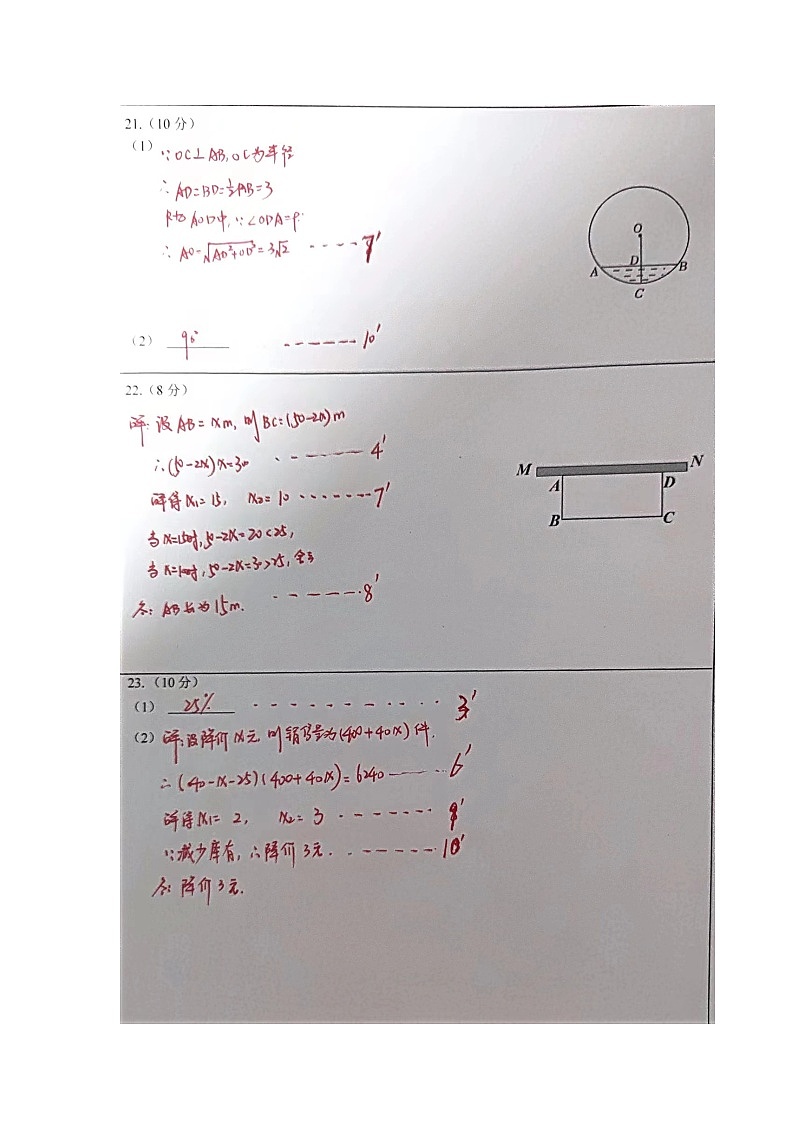 21.（10 分）
（1） ∵ OC⊥AB, OC为半径
∴ AD=BD=½AB=3
Rt△AOD中, ∵∠ODA=90°
∴ AO=√AD²+OD²=3√2 ----- 7'
O
D
A
B
C
（2） 90° ------ 10'
22.（8 分）
解: 设AB= xm, 则BC=(50-2x)m
∴(50-2x)x=300 ------- 4'
解得x₁=15, x₂=10 ------- 7'
M
N
A
D
B
C
当x=15时, 50-2x=20<25,
当x=10时, 50-2x=30>25, 舍去
答: AB长为15m. ------- 8'
23.（10 分）
（1） 25% ---------- 3'
（2） 解: 设降价x元 则销售量为(400+40x)件.
∴ (40-x-25)(400+40x)=6240 ------ 6'
解得x₁= 2, x₂= 3 ------- 9'
∵减少库存, ∴降价3元. ------- 10'
答: 降价3元.